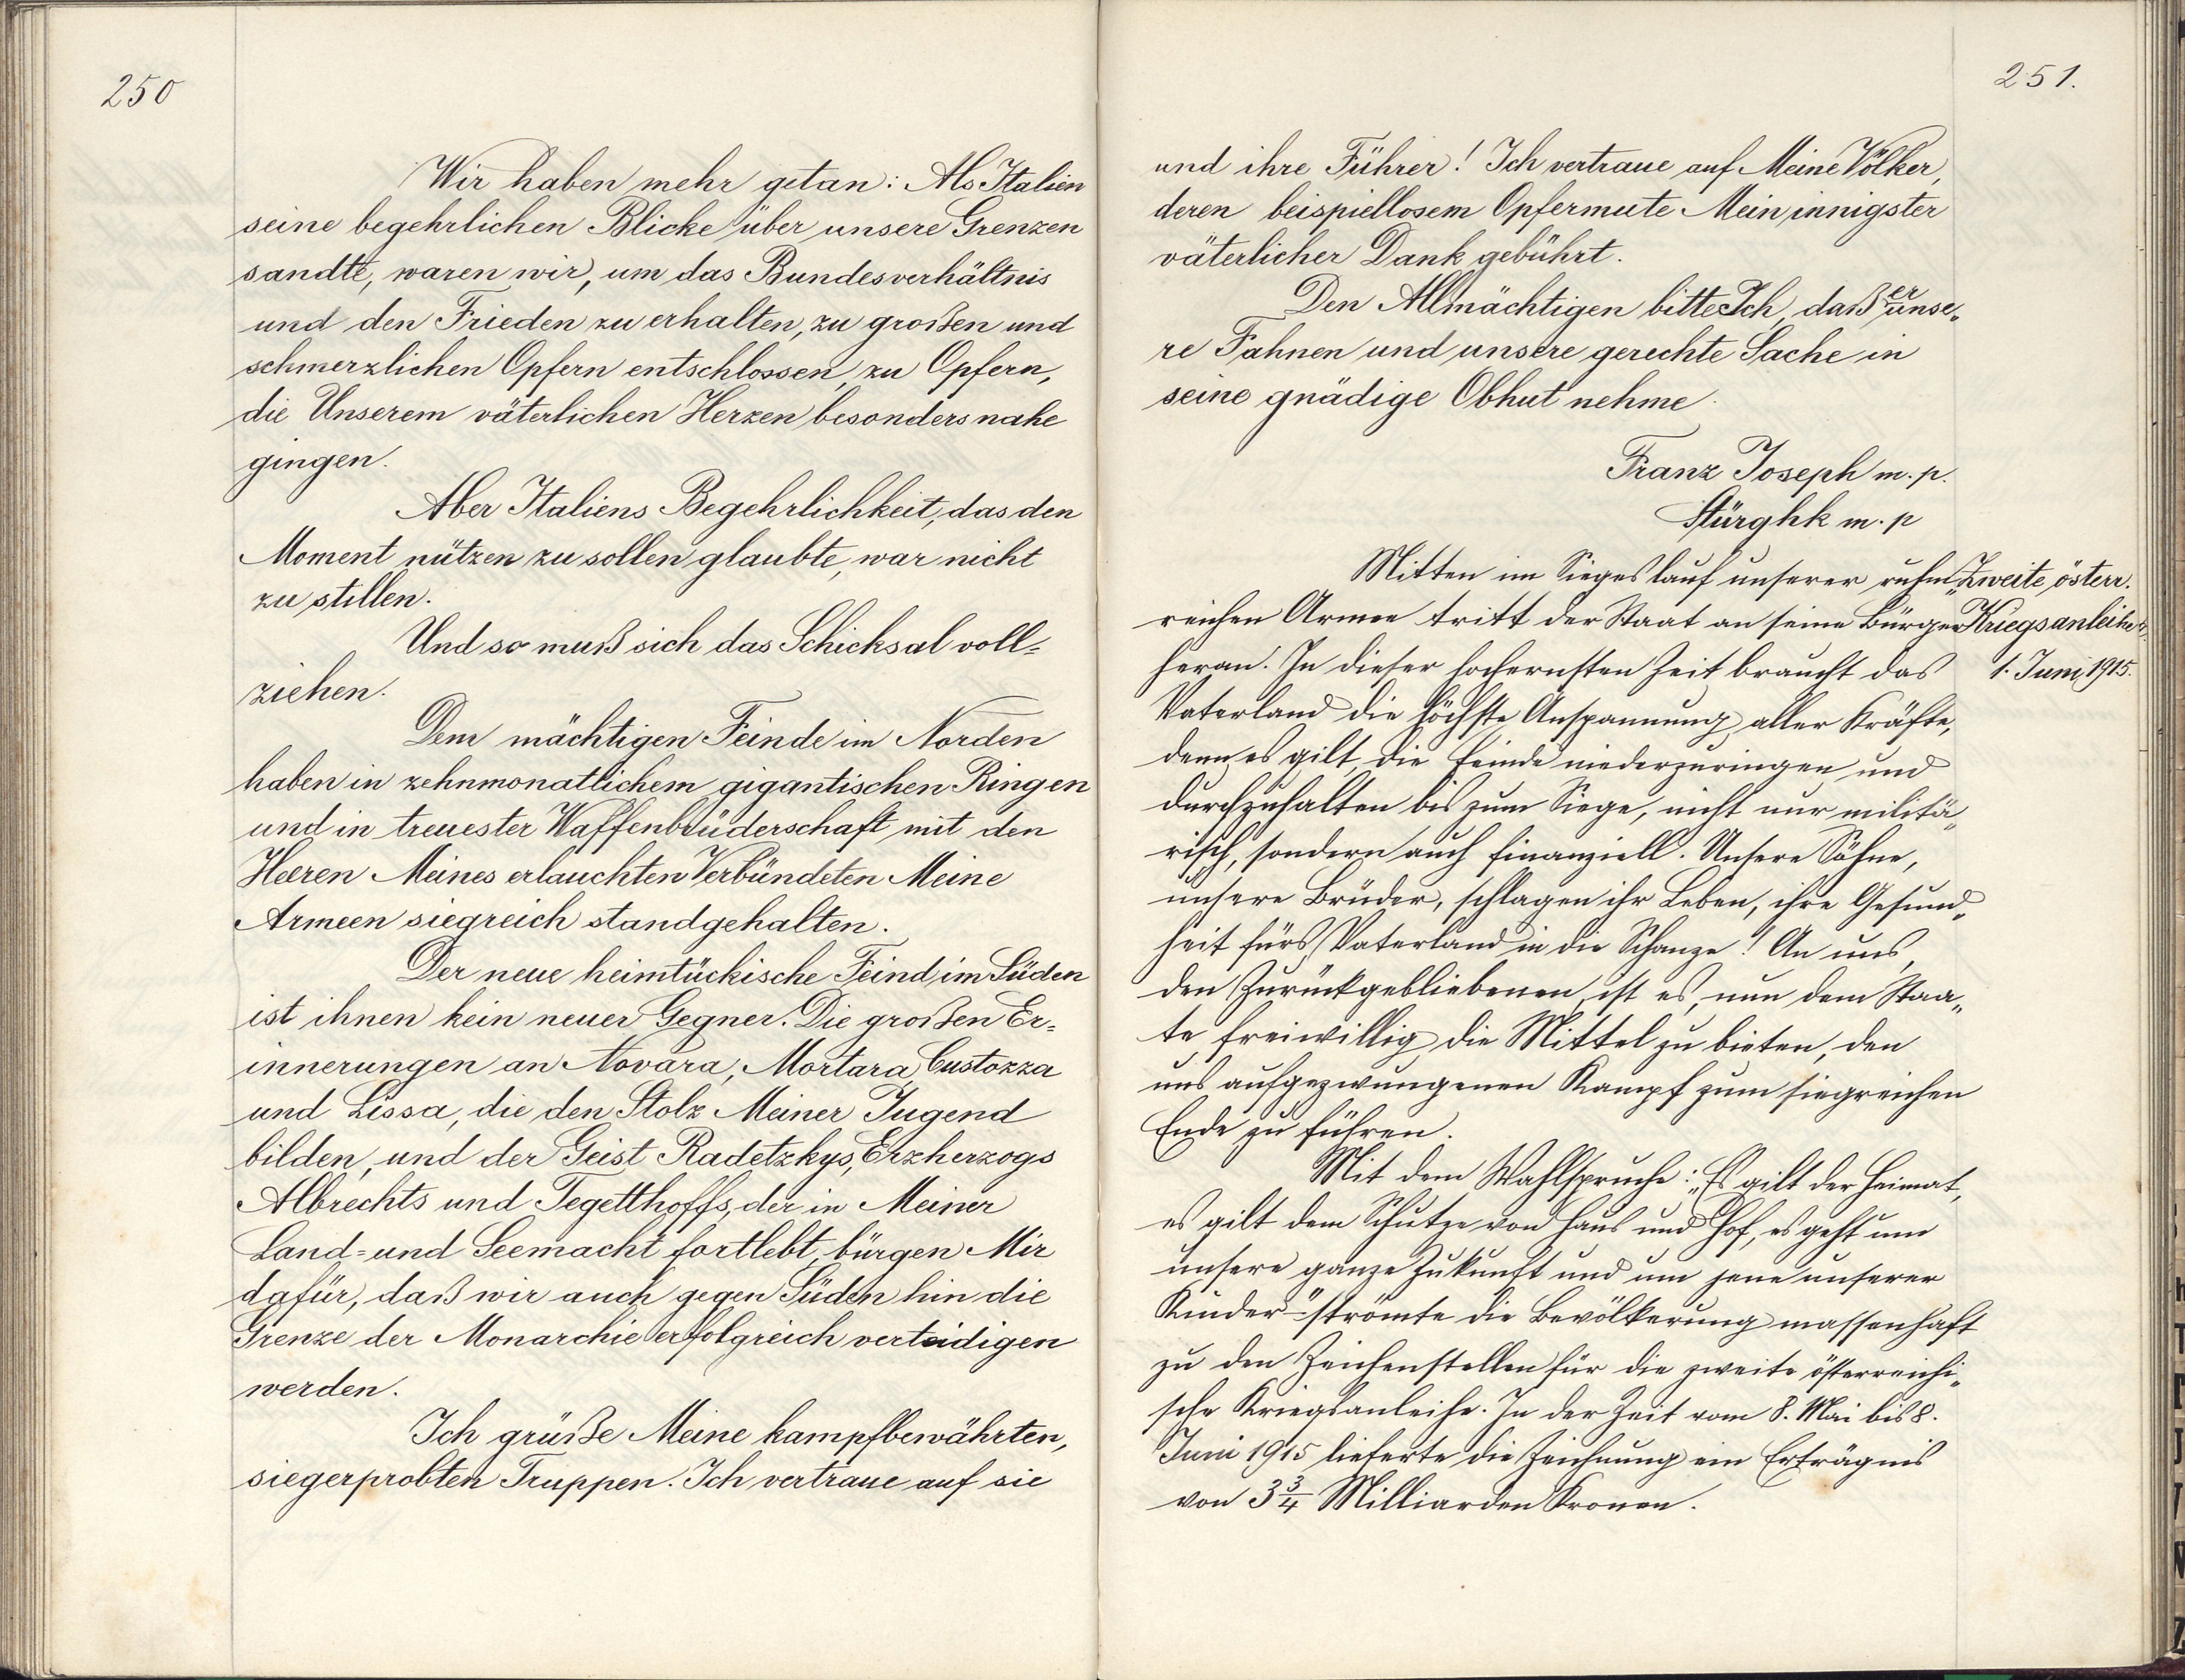 250
Wir haben mehr getan: Als Italien
seine begehrlichen Blicke über unsere Grenzen
sandte, waren wir, um das Bundesverhältnis
und den Frieden zu erhalten, zu großen und
schmerzlichen Opfern entschlossen, zu Opfern,
die Unserem väterlichen Herzen besonders nahe
gingen.
Aber Italiens Begehrlichkeit, das den
Moment nützen zu sollen glaubte, war nicht
zu stillen.
Und so muß sich das Schicksal voll=
ziehen.
Dem mächtigen Feinde im Norden
haben in zehnmonatlichem gigantischen Ringen
und in treuester Waffenbrüderschaft mit den
Heeren Meines erlauchten Verbündeten Meine
Armeen siegreich standgehalten.
Der neue heimtückische Feind im Süden
ist ihnen kein neuer Gegner. Die großen Er=
innerungen an Novara, Mortara, Custozza
und Lissa, die den Stolz Meiner Jugend
bilden, und der Geist Radetzkys, Erzherzogs
Albrechts und Tegetthoffs, der in Meiner
Land= und Seemacht fortlebt, bürgen Mir
dafür, daß wir auch gegen Süden hin die
Grenze der Monarchie erfolgreich verteidigen
werden.
Ich grüße Meine kampfbewährten,
siegerprobten Truppen. Ich vertraue auf sie
251.
und ihre Führer! Ich vertraue auf Meine Völker,
deren beispiellosem Opfermute Mein innigster
väterlicher Dank gebührt.
Den Allmächtigen bitte Ich, daß er unse„
re Fahnen und unsere gerechte Sache in
seine gnädige Obhut nehme.
Franz Joseph m. p.
Stürghk m. p
Mitten im Siegeslauf unserer ruhm„
reichen Armee tritt der Staat an seine Bürger
heran. In dieser hochernsten Zeit braucht das
Vaterland die höchste Anspannung aller Kräfte,
denn es gilt, die Feinde niederzuringen und
durchzuhalten bis zum Siege, nicht nur militä„
risch, sondern auch finanziell. Unsere Söhne,
unsere Brüder, schlagen ihr Leben, ihre Gesund„
heit fürs Vaterland in die Schanze! An uns,
den Zurückgebliebenen, ist es, nun dem Staa„
te freiwillig die Mittel zu bieten, den
uns aufgezwungenen Kampf zum siegreichen
Ende zu führen.
Mit dem Wahlspruche: „Es gilt der Heimat,
es gilt dem Schutze von Haus und Hof, es geht um
unsere ganze Zukunft und um jene unserer
Kinder" - strömte die Bevölkerung massenhaft
zu den Zeichenstellen für die zweite österreichi„
sche Kriegsanleihe. In der Zeit vom 8. Mai bis 8.
Juni 1915 lieferte die Zeichnung ein Erträgnis
von 3 3/4 Milliarden Kronen.
Zweite österr.
Kriegsanleihe
1. Juni 1915.